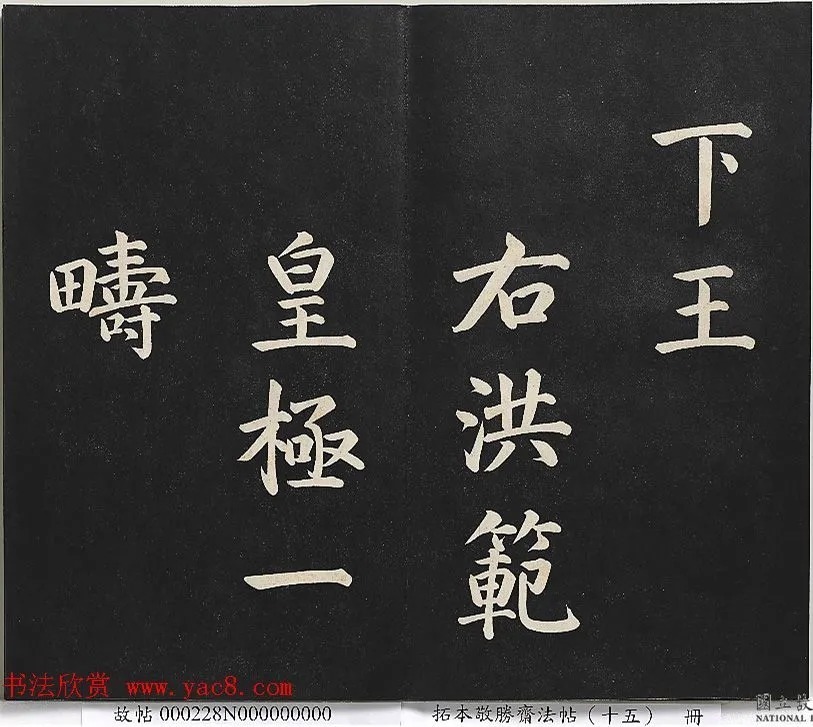 下王
右洪範
皇極一
疇
书法欣赏 www.yac8.com
故帖 000228N000000000
拓本敬勝齋法帖（十五） 冊
NATIONAL